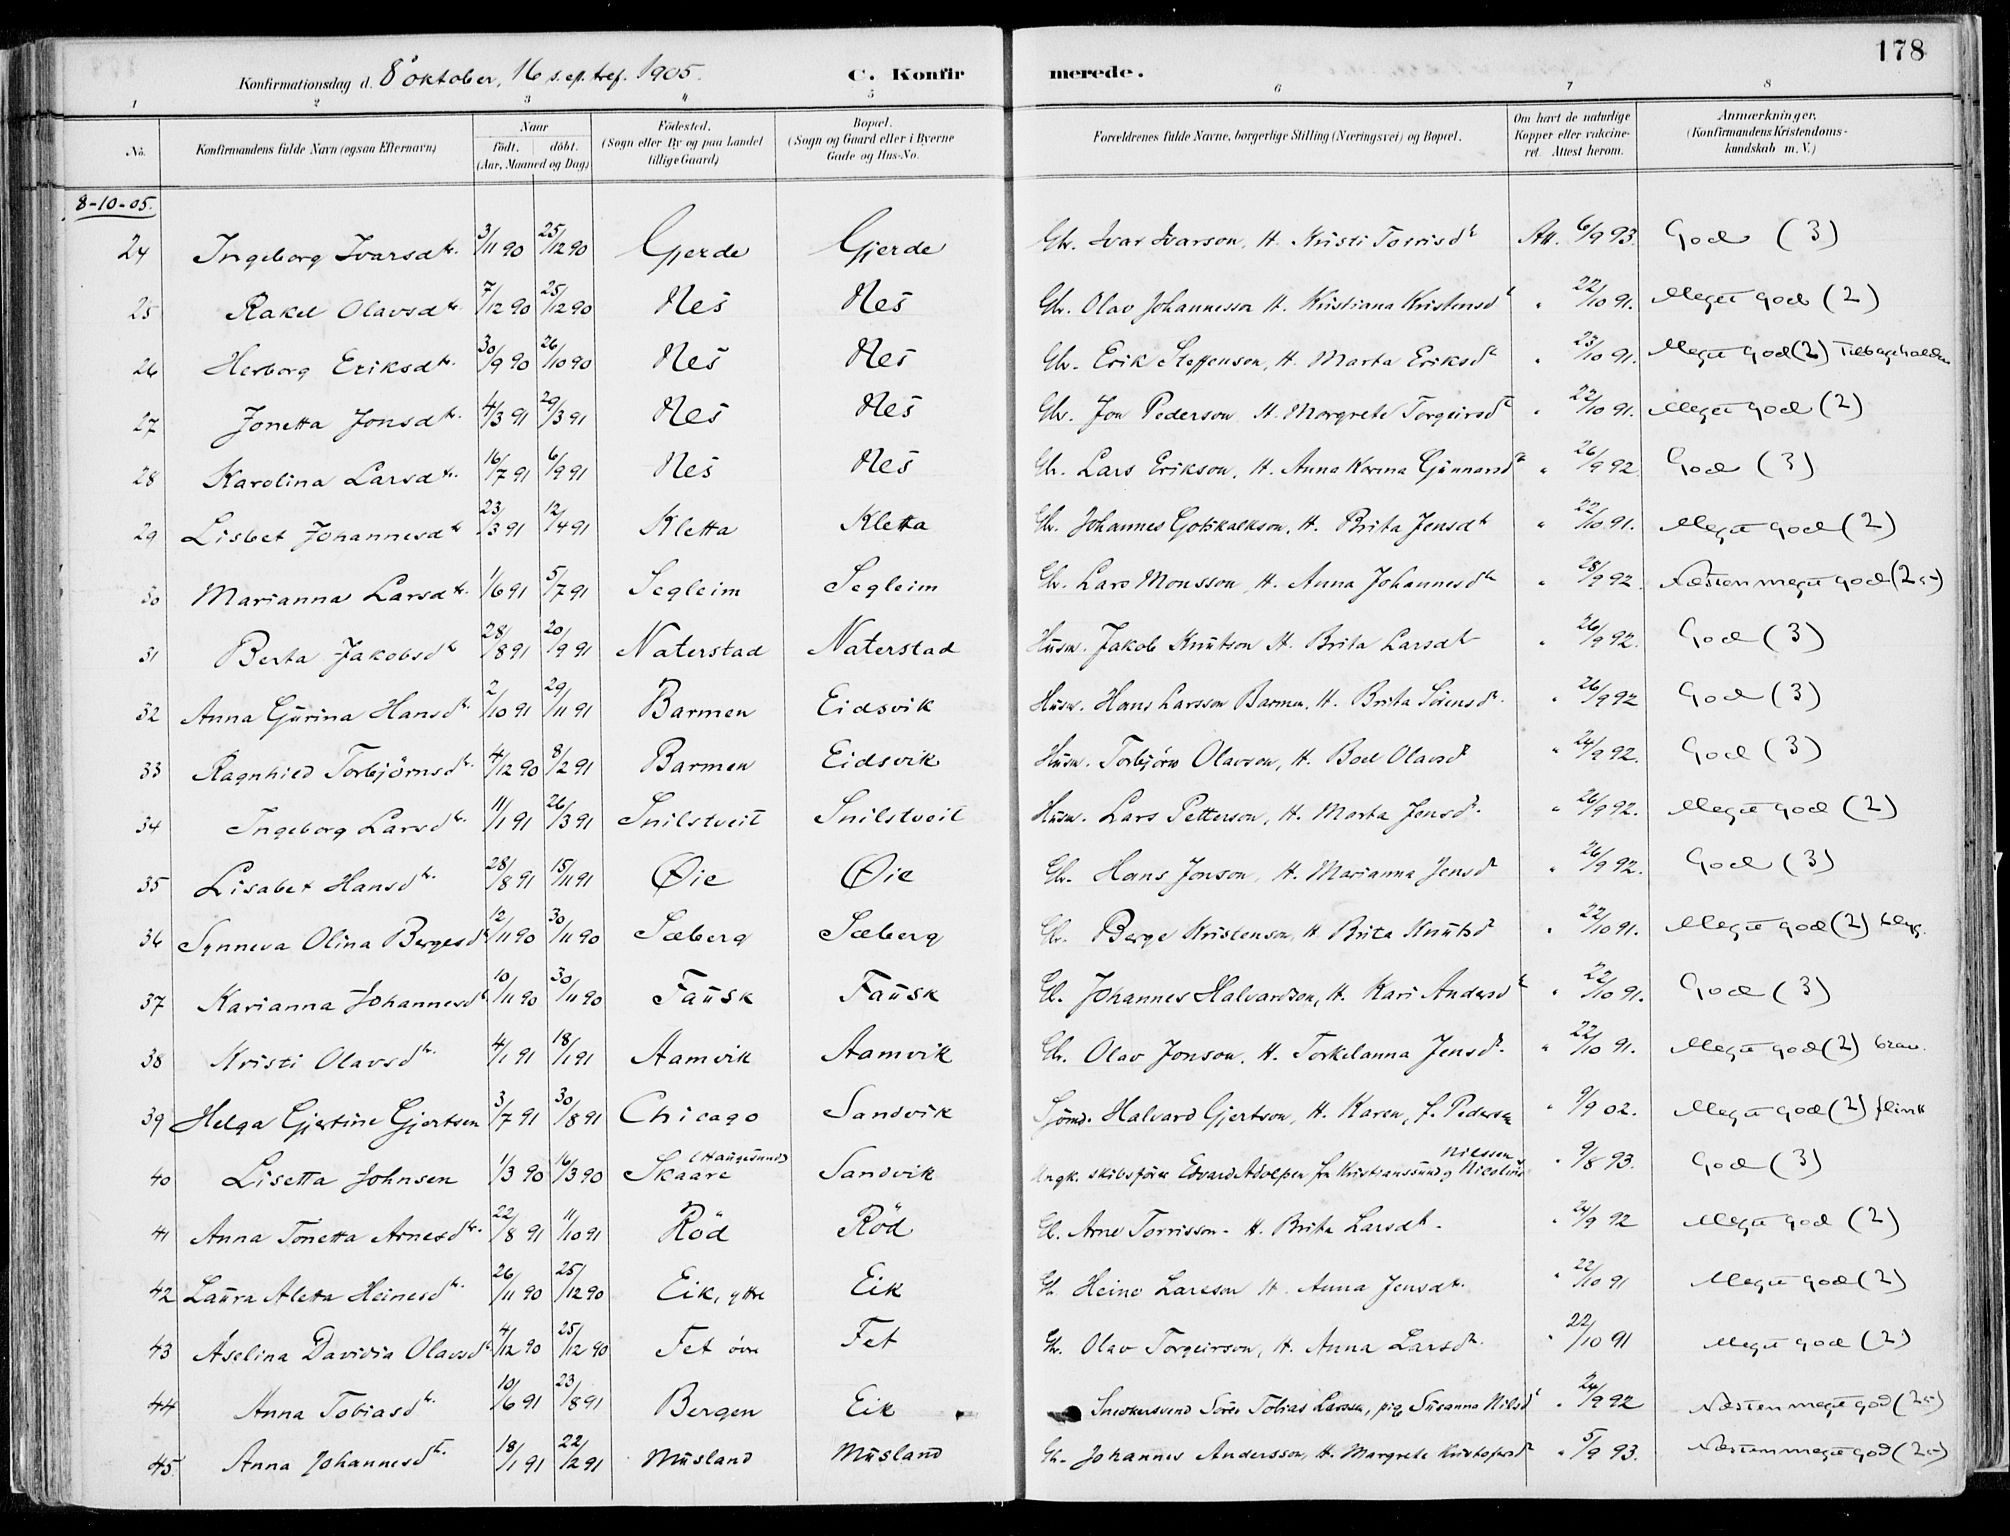 178
Konfirmationsdag d. 8' oktober, 16 s. ef. tref. 1905. C. Konfirmerede.
1 2 3 4 5 6 7 8
No. Konfirmandens fulde Navn (ogsaa Efternavn) Naar født. døbt. (Aar, Maaned og Dag) Fødested. (Sogn eller By og paa Landet tillige Gaard) Bopæl. (Sogn og Gaard eller i Byerne Gade og Hus-No. Forældrenes fulde Navne, borgerlige Stilling (Næringsvei) og Bopæl. Om havt de naturlige Kopper eller vakcineret. Attest herom. Anmærkninger. (Konfirmandens Kristendomskundskab m. V.)
8-10-05.
24 Ingeborg Ivarsdtr. 3/11 90 25/12 90 Gjerde Gjerde Gbr. Ivar Ivarson, H. Kristi Torrisdr Att. 6/9 93. God (3)
25 Rakel Olavsdtr. 7/12 90 25/12 90 Nes Nes Gbr. Olav Johannesson H. Kristiana Kristensdr " 22/10 91. Meget god (2)
26 Herborg Eriksdtr. 30/9 90 26/10 90 Nes Nes Gbr. Erik Steffenson, H. Marta Eriksdr " 23/10 91. Meget god (2) Tilbageholden
27 Jonetta Jonsdtr. 4/3 91 29/3 91 Nes Nes Gbr. Jon Pederson H. Morgrete Torgeirsdr " 22/10 91. Meget god (2)
28 Karolina Larsdtr. 16/7 91 6/9 91 Nes Nes Gbr. Lars Erikson, H. Anna Korina Gunnarsdr " 26/9 92 God (3)
29 Lisbet Johannesdtr 23/3 91 12/4 91 Kletta Kletta Gbr. Johannes Gotskalkson, H. Brita Jensdtr " 22/10 91. Meget god (2)
30 Marianna Larsdtr. 1/6 91 5/7 91 Segleim Segleim Gbr. Lars Monsson, H. Anna Johannesdtr " 28/9 92. Næsten meget god (2÷)
31 Berta Jakobsdtr 28/8 91 20/9 91 Naterstad Naterstad Husm. Jakob Knutson H. Brita Larsdtr " 26/9 92. God (3)
32 Anna Gurina Hansdtr. 2/10 91 29/11 91 Barmen Eidsvik Husm. Hans Larsson Barmen, H. Brita Sörensdr. " 26/9 92 God (3)
33 Ragnhild Torbjörnsdtr. 4/12 90 8/2 91 Barmen Eidsvik Husm. Torbjörn Olavson, H. Boel Olavsdr " 24/9 92. God (3)
34 Ingeborg Larsdtr. 11/1 91 26/3 91 Snilstveit Snilstveit Husm. Lars Petterson, H. Marta Jensdr. " 26/9 92. Meget god (2)
35 Lisabet Hansdtr. 28/8 91 15/11 91 Øie Øie Gbr. Hans Jonson, H. Marianna Jensdr " 26/9 92. God (3)
36 Synneva Olina Bergesdtr 12/11 90 30/11 90 Sæberg Sæberg Gbr. Berge Kristenson, H. Brita Knutsdr " 22/10 91. Meget god (2) blyg.
37 Karianna Johannesdtr 10/11 90 30/11 90 Fausk Fausk Gbr. Johannes Halvardson, H. Kari Andersdr " 22/10 91. God (3)
38 Kristi Olavsdtr. 4/1 91 18/1 91 Aamvik Aamvik Gbr. Olav Jonson, H. Torkelanna Jensdr. " 22/10 91. Meget god (2) brav.
39 Helga Gjertine Gjertsen 3/7 91 30/8 91 Chicago Sandvik Sjömd. Halvard Gjertson, H. Karen, f. Pedersen " 9/9 02. Meget god (2) flink
40 Lisetta Johnsen 1/3 90 16/3 90 Skaare (Haugesund) Sandvik Ungk. skibsfører Edvard Adolfsen fra Kristianssund og Nicoline Nilssen " 9/8 93. God (3)
41 Anna Tonetta Arnesdtr. 22/8 91 11/10 91 Röd Röd Gbr. Arne Torrisson - H. Brita Larsdtr. " 24/9 92 Meget god (2)
42 Laura Aletta Heinesdtr. 26/11 90 25/12 90 Eik, ytre Eik Gbr Heine Larsson H. Anna Jensdtr. " 22/10 91 Meget god (2)
43 Åselina Davidia Olavsdtr 4/12 90 25/12 90 Fet övre Fet Gbr. Olav Torgeirson, H. Anna Larsdr. " 22/10 91 Meget god (2)
44 Anna Tobiasdtr. 10/6 91 23/8 91 Bergen Eik Snedkersvend Sören Tobias Larsen, pige Susanna Nilsdr " 24/9 92 Næsten meget god (2÷)
45. Anna Johannesdtr. 18/1 91 22/2 91 Musland Musland Gbr. Johannes Andersson, H. Margrete Kristofersdr " 5/9 93. Næsten meget god (2÷)